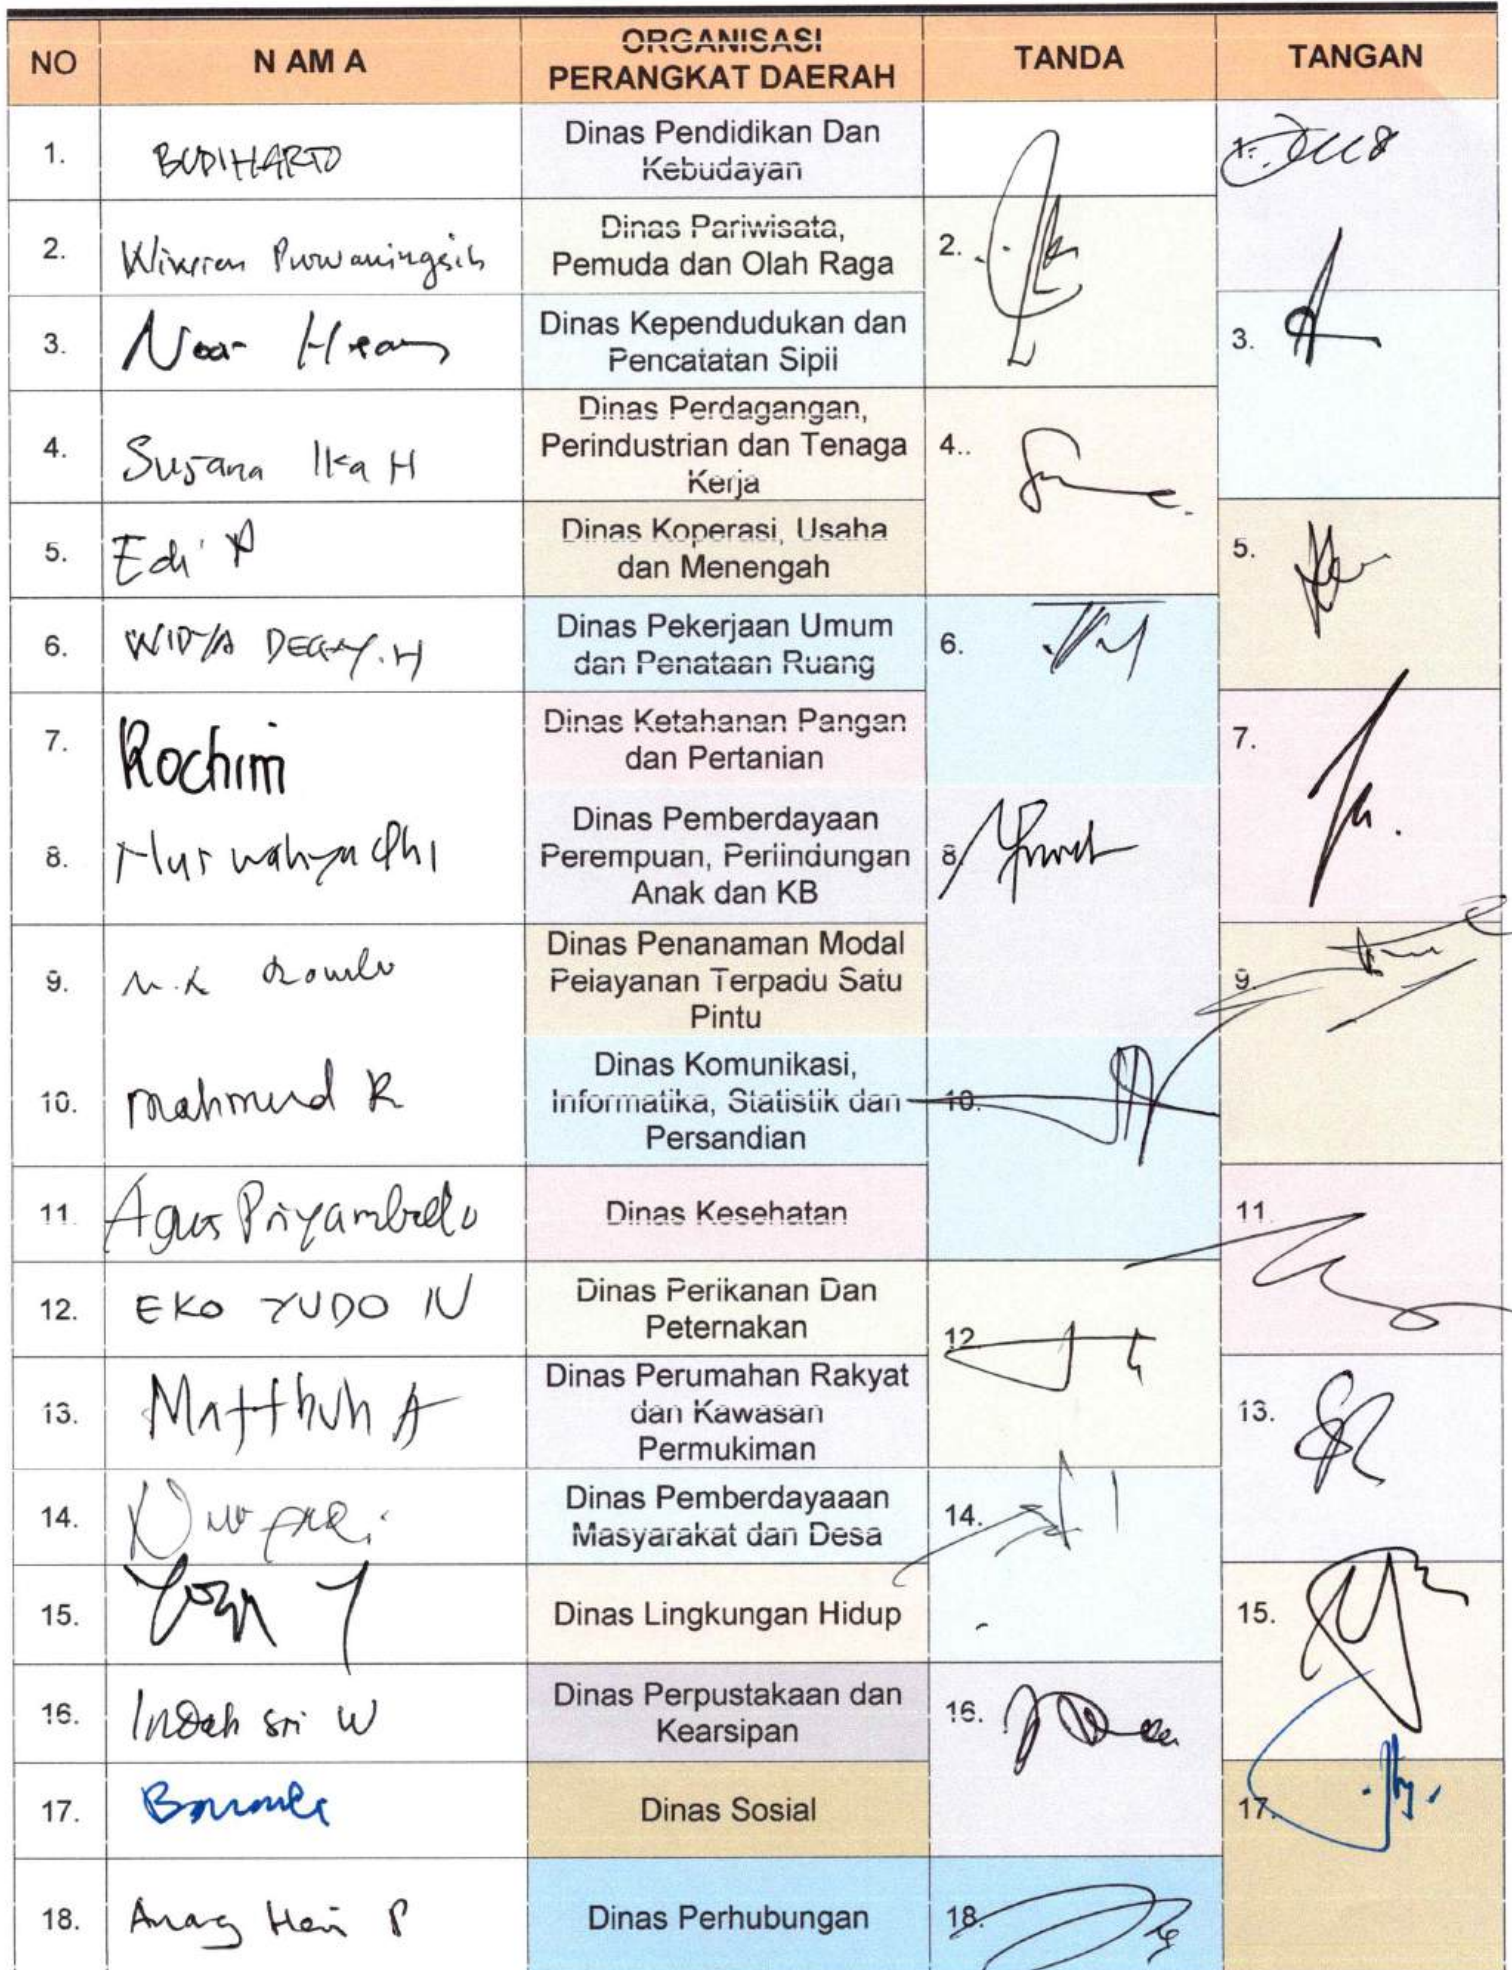 NO
N A M A
ORGANISASI
PERANGKAT DAERAH
TANDA
TANGAN
1.
BUDIHARTO
Dinas Pendidikan Dan
Kebudayan
1.
2.
Purwaningsih
Dinas Pariwisata,
Pemuda dan Olah Raga
2.
3.
Noor
Dinas Kependudukan dan
Pencatatan Sipil
3.
4.
Susana Ika H
Dinas Perdagangan,
Perindustrian dan Tenaga
Kerja
4..
5.
Edi P
Dinas Koperasi, Usaha
dan Menengah
5.
6.
WIDYA
Dinas Pekerjaan Umum
dan Penataan Ruang
6.
7.
Rochim
Dinas Ketahanan Pangan
dan Pertanian
7.
8.
Dinas Pemberdayaan
Perempuan, Perlindungan
Anak dan KB
8.
9.
Dinas Penanaman Modal
Pelayanan Terpadu Satu
Pintu
9.
10.
Mahmud R
Dinas Komunikasi,
Informatika, Statistik dan
Persandian
10.
11.
Agus Priyambodo
Dinas Kesehatan
11.
12.
EKO YUDO N
Dinas Perikanan Dan
Peternakan
12.
13.
A
Dinas Perumahan Rakyat
dan Kawasan
Permukiman
13.
14.
Dinas Pemberdayaaan
Masyarakat dan Desa
14.
15.
Dinas Lingkungan Hidup
15.
16.
Indah Sri W
Dinas Perpustakaan dan
Kearsipan
16.
17.
Dinas Sosial
17.
18.
Anang Heri P
Dinas Perhubungan
18.